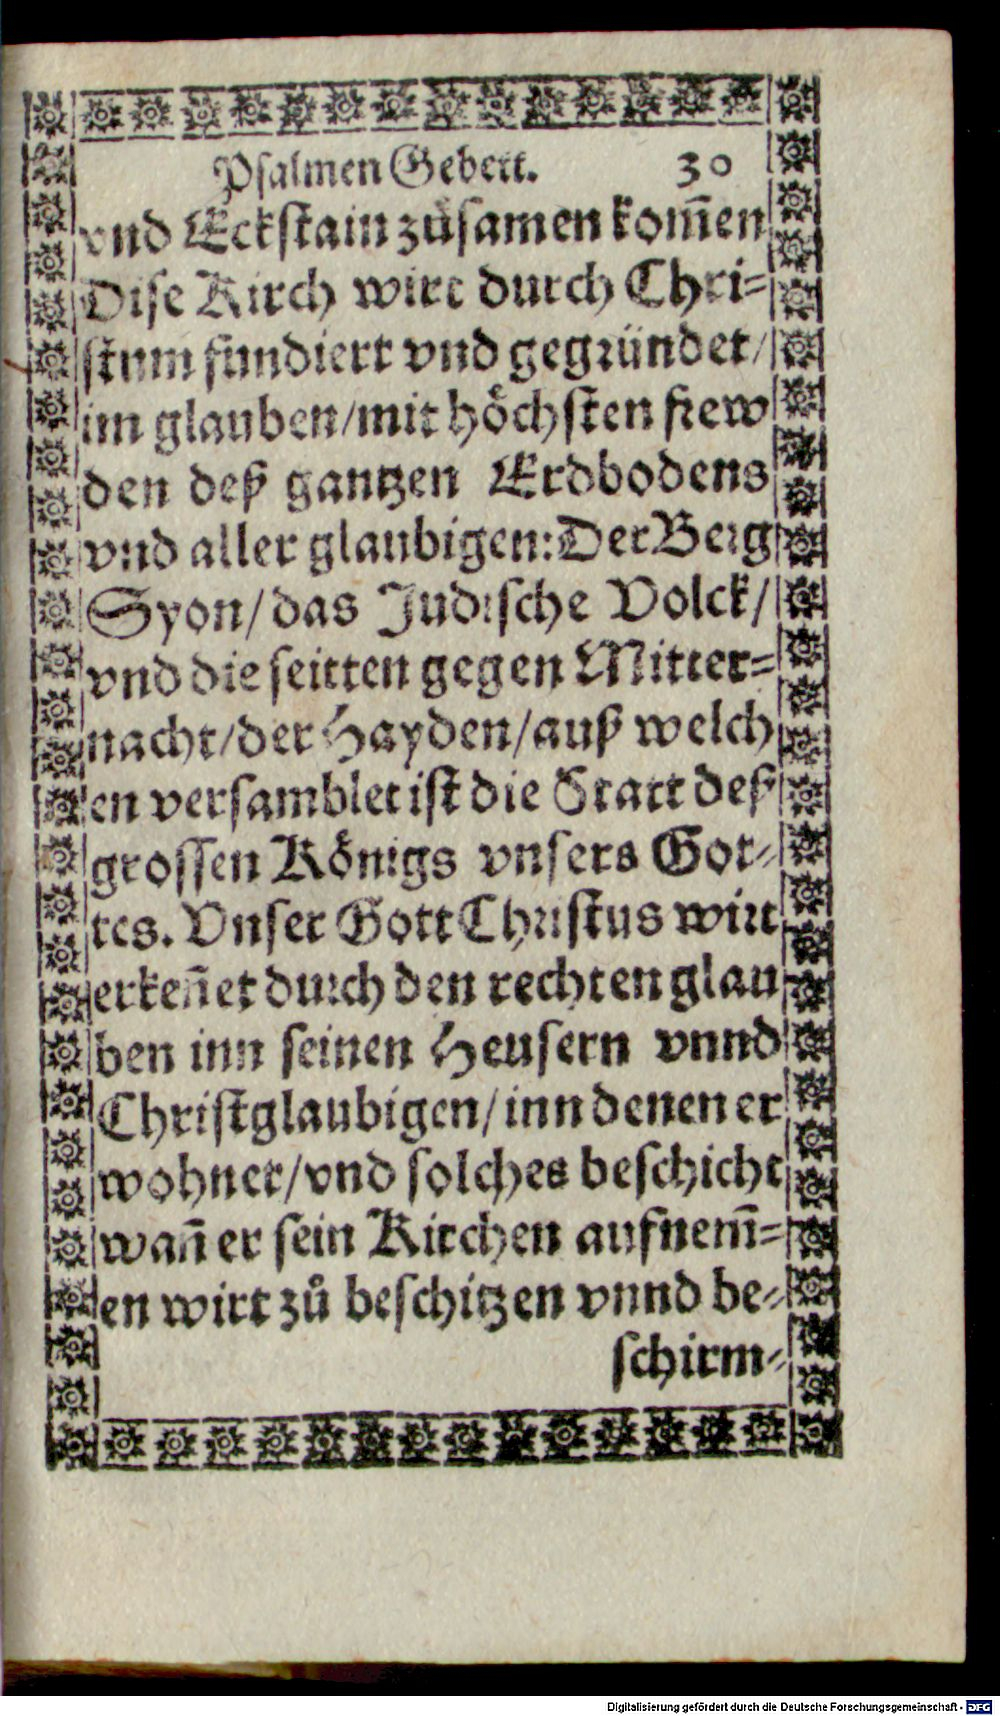 Psalmen Gebett. 30
vnd Eckstain zůsamen kom̃en
Dise Kirch wirt durch Chri-
stum fundiert vnd gegründet/
im glauben/mit höchsten frew
den deß gantzen Erdbodens
vnd aller glaubigen: Der Berg
Syon/das Judische Volck/
vnd die seitten gegen Mitter-
nacht/der Hayden/auß welch
en versamblet ist die Statt deß
grossen Königs vnsers Got-
tes. Vnser Gott Christus wirt
erkeñet durch den rechten glau
ben inn seinen Heusern vnnd
Christglaubigen/inn denen er
wohnet/vnd solches beschicht
wañ er sein Kirchen aufnem̃-
en wirt zů beschitzen vnnd be-
schirm-
Digitalisierung gefördert durch die Deutsche Forschungsgemeinschaft - DFG